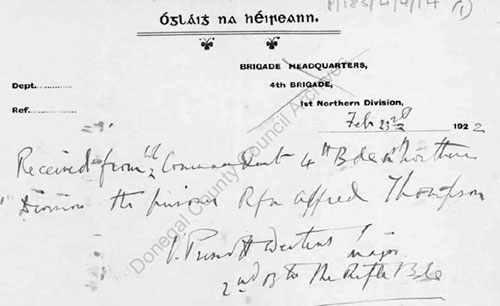 P/183/4/4/14 (1)
Óglaiġ na hÉireann.
BRIGADE HEADQUARTERS,
4TH BRIGADE,
1st Northern Division,
Dept.............
Ref.............
Feb 23rd 1922
Received from Commandant 4th Bde 1st Northern
Division the prisoner Rfn Alfred Thompson
Major
2nd Bn The Rifle Bde
Donegal County Council Archives